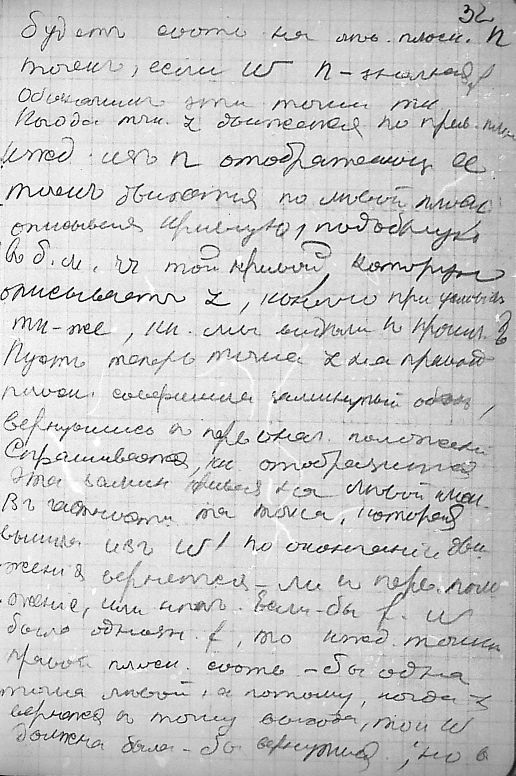 32
будетъ соотв на лѣв. плоск. n
точекъ, если W n-значная f
Обозначимъ эти точки
Когда тчк. z движется по прав. плоск
кжд. изъ n отображающ ее
точекъ движется по лѣвой плоск
описывая кривую, подобную
въ б. м. ч. той кривой, которую
описываетъ z, конечно при условіи
тѣ-же, кк. мы видѣли в прошл.
Пусть теперь точка z на правой
плоск. совершила замкнутый обх,
вернувшись в первонач. положеніе
Спрашивается, кк. отобразится
эта замкн кривая на лѣвой плоск.
Въ частности та точка, которая
вышла изъ W по окончаніи дви
женія вернется-ли в перв. поло
женіе, или нѣтъ. Если-бы f. W
была однозн. f, то кжд. точки
правой плоск. соотв-бы одна
точка лѣвой, а потому, когда z
вернется в точку выхода, то и W
должна была-бы вернуться, но в